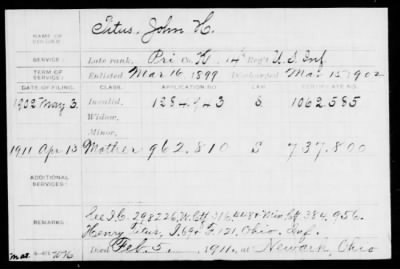 NAME OF SOLDIER: Titus, John H.
SERVICE: Late rank, Pri Co. K, 14" Reg't U.S. Inf.
TERM OF SERVICE: Enlisted Mar. 16, 1899 Discharged Mar. 15, 1902
DATE OF FILING. CLASS. APPLICATION NO. LAW. CERTIFICATE NO.
1902 May 3. Invalid, 1284943 S 1062585
Widow,
Minor,
1911 Apr 13 Mother 962.810 S 737.800
ADDITIONAL SERVICES:
REMARKS: See I.C. 298226, W. Ctf 316448 & Min Ctf 384,956.
Henry Titus, 121, Ohio. Inf.
Died Feb. 5, 1911, at Newark, Ohio